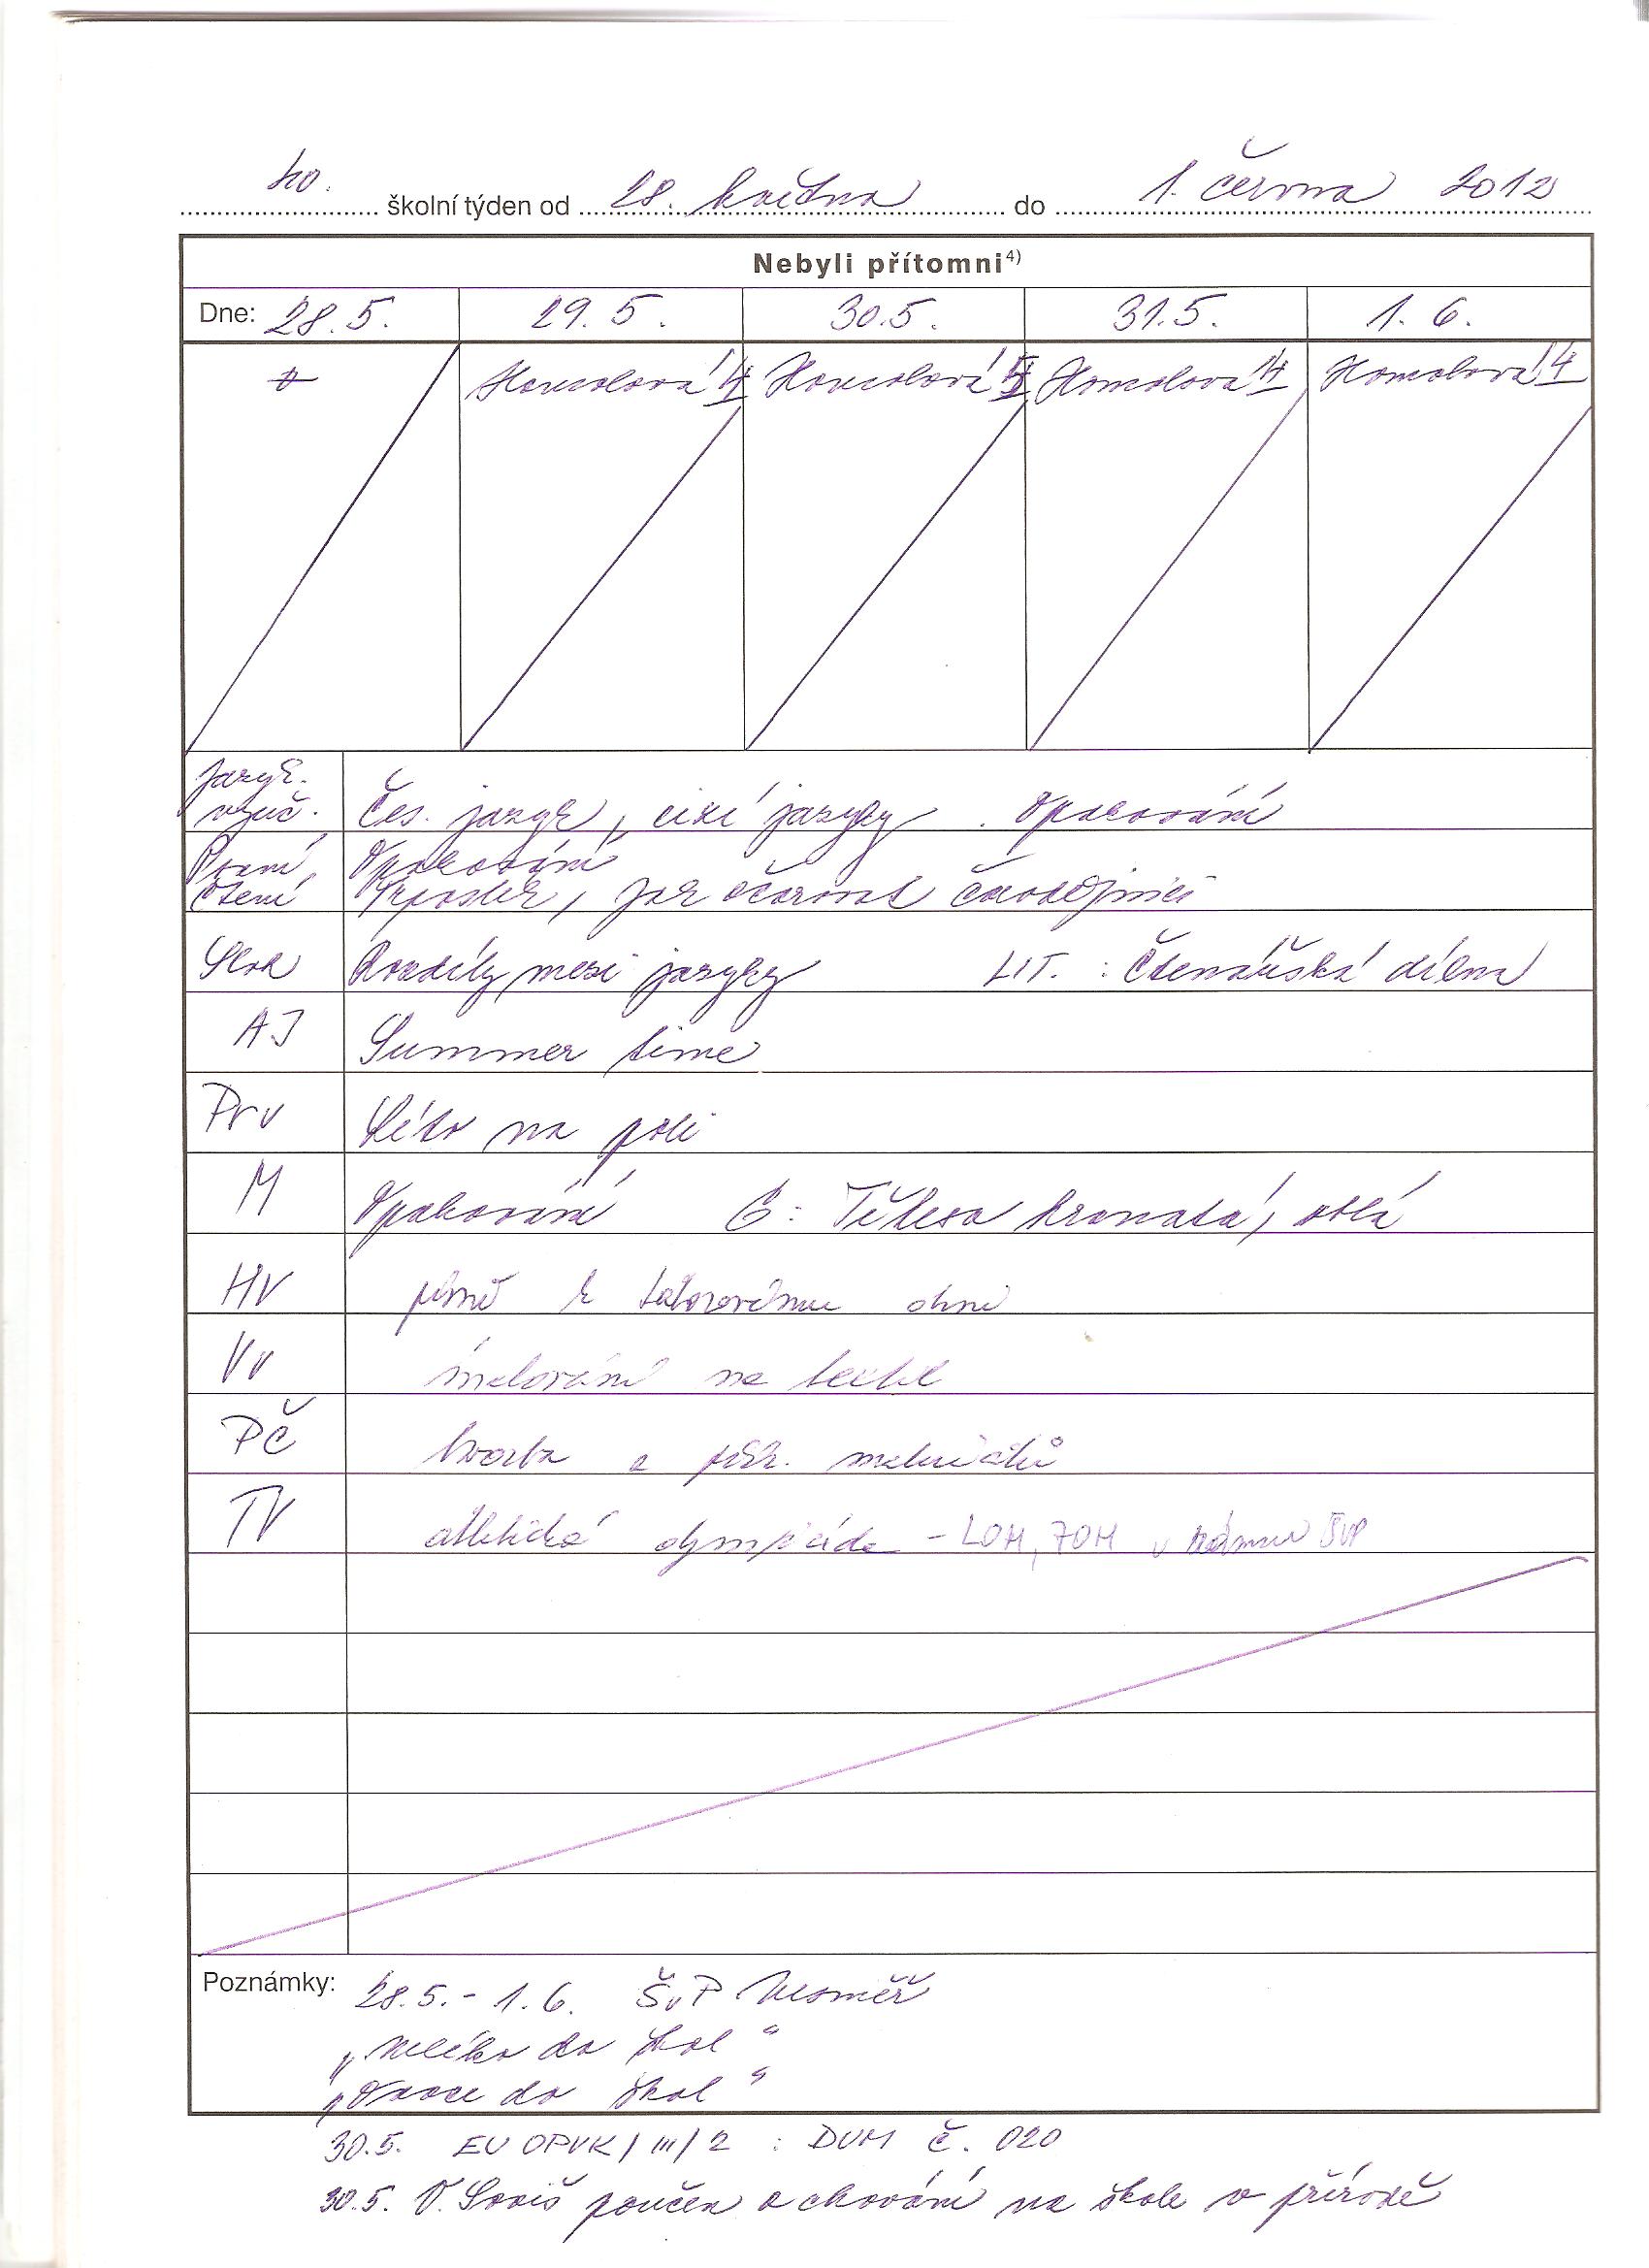 40. školní týden od 28. května do 1. června 2012
Nebyli přítomni4)
Dne: 28.5. 29.5. 30.5. 31.5. 1.6.
Homolová 4 Homolová Homolová 4 Homolová 4
Jazyk.
vyuč. Čes. jazyk, cizí jazyky. Opakování
Psaní, Opakování
Čtení jak očarovat čarodějnici
Sloh Rozdíly mezi jazyky LIT. : Čtenářská dílna
AJ Summer time
Prv Léto na poli
M Opakování G: Tělesa hranatá, oblá
HV písně k táborovému ohni
Vv malování na textil
PČ tvorba z přír. materiálů
TV atletická olympiáda - LOM, ZOM v rámci ŠVP
Poznámky: 28.5. - 1.6. ŠvP Nesměř
„Mléko do škol"
„Ovoce do škol"
30.5. EU OPVK/III/2 : DUM č. 020
30.5. V. poučen o chování na škole v přírodě